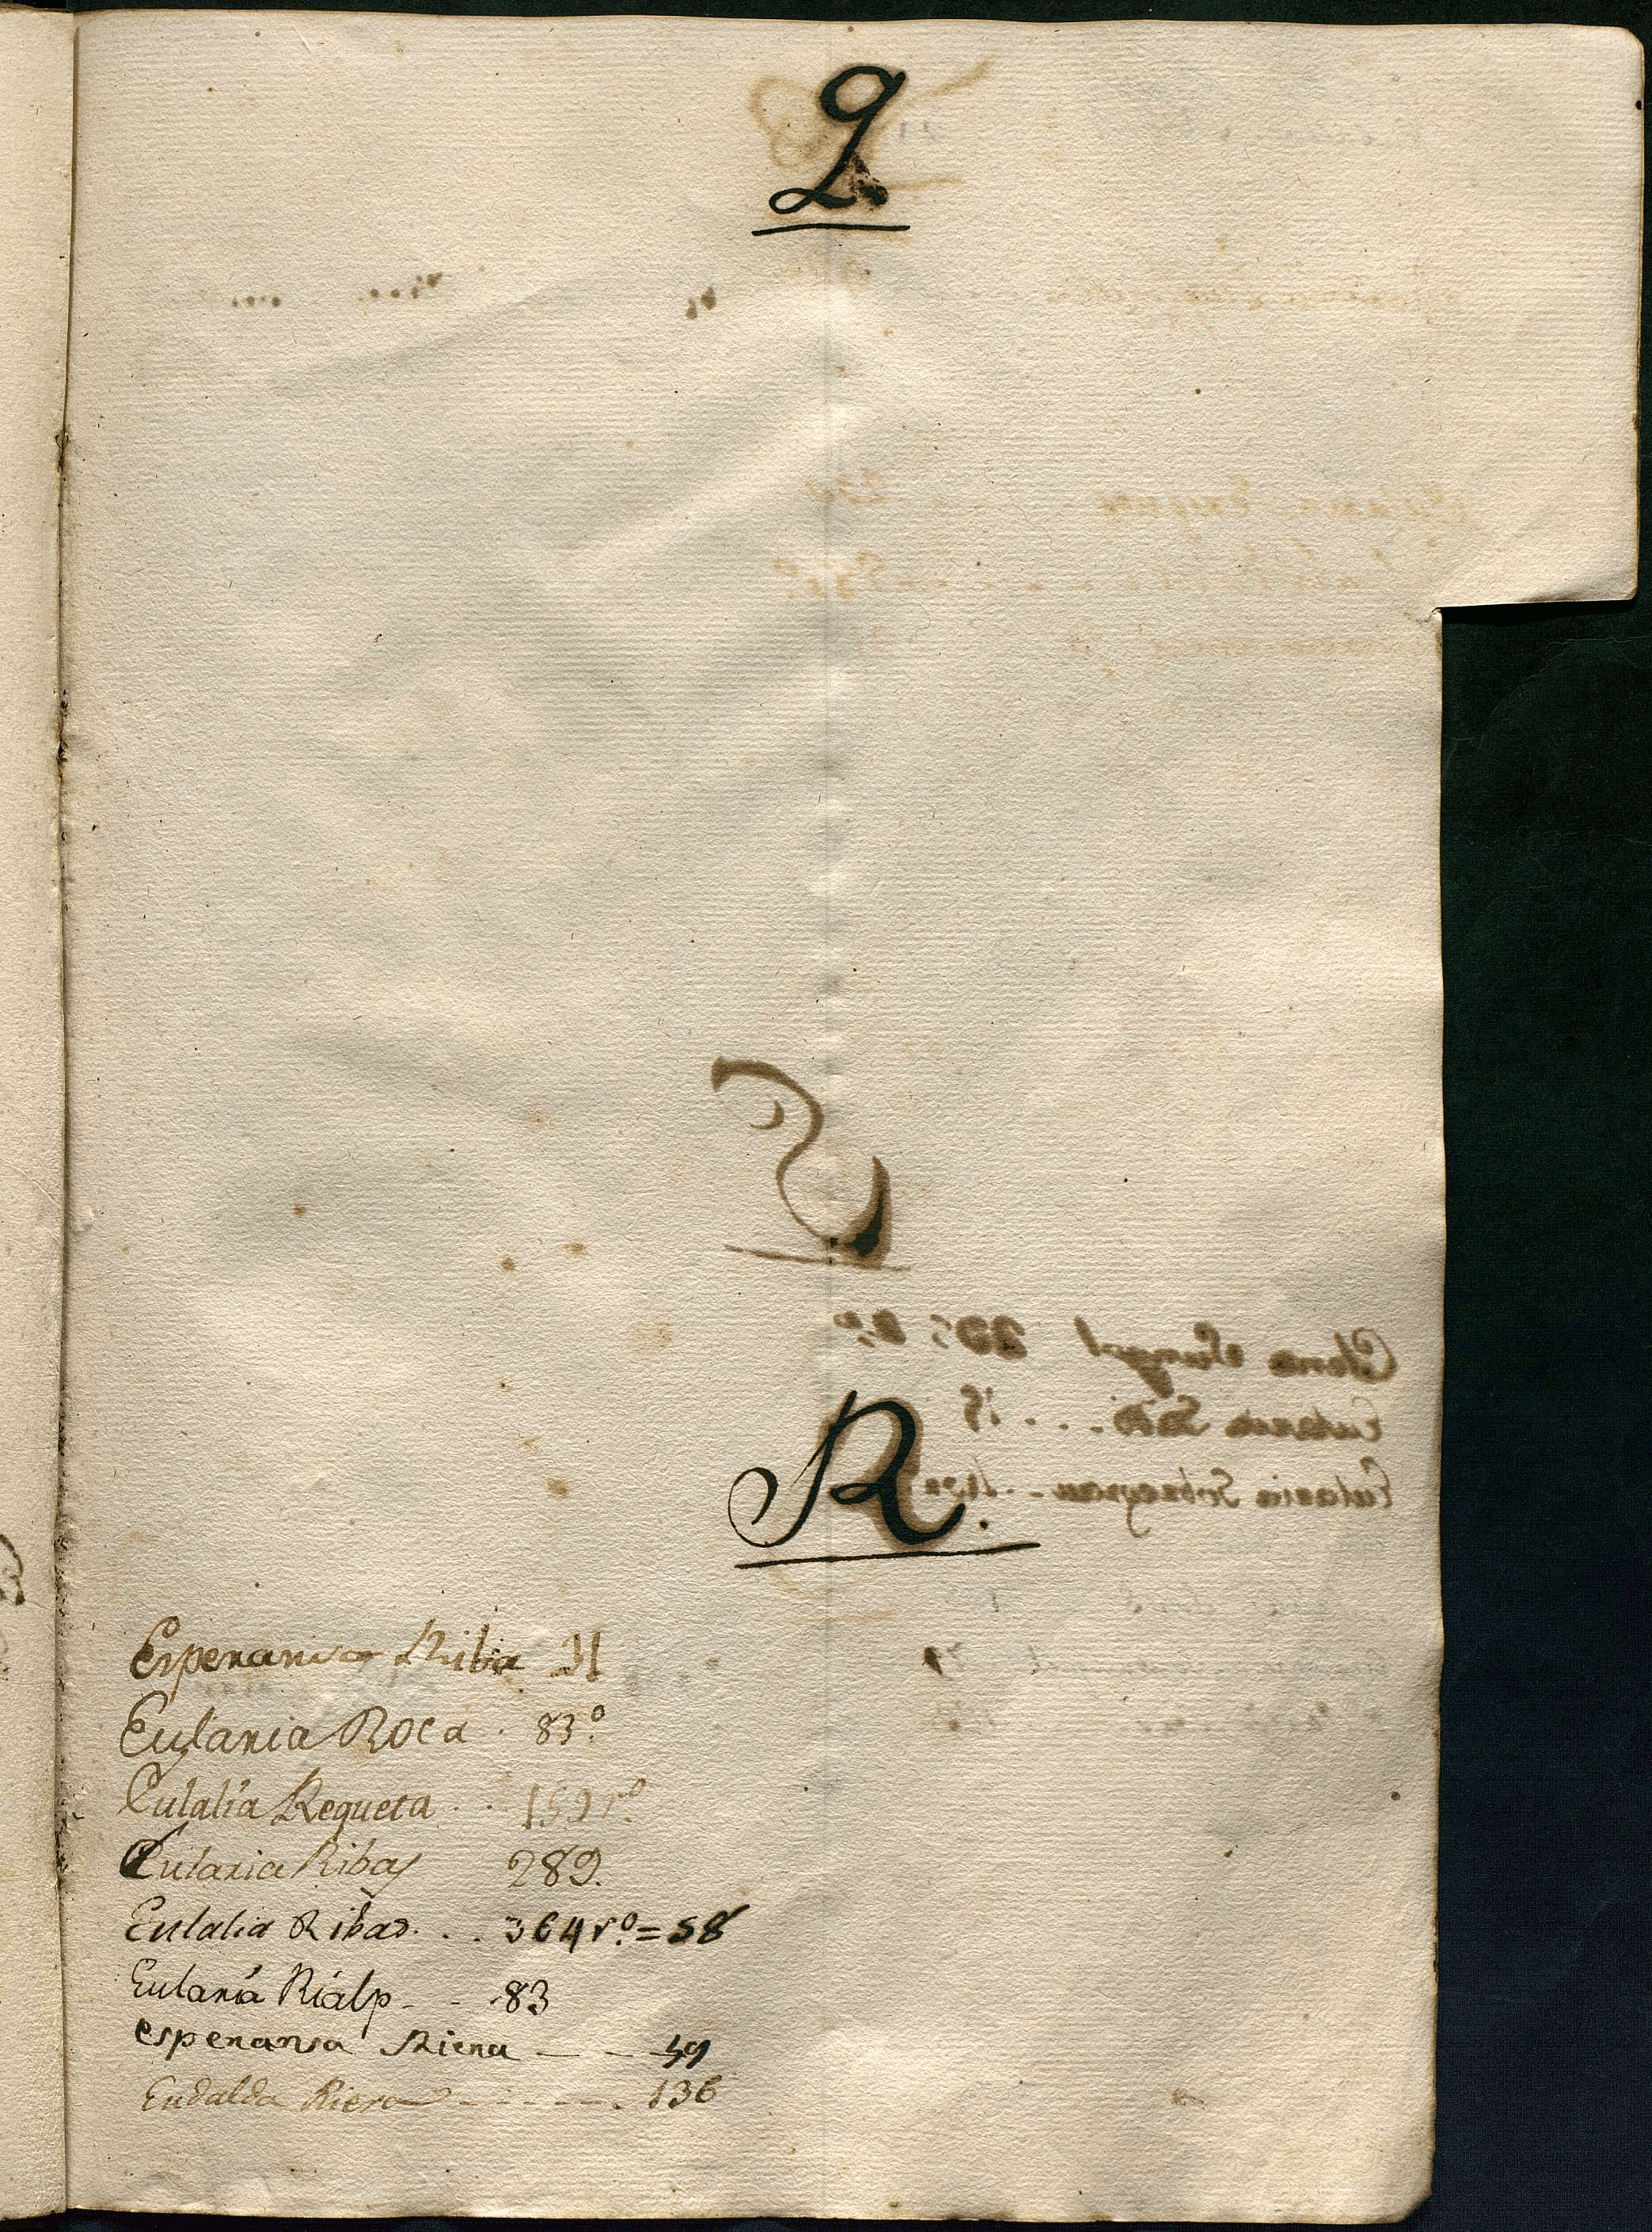 Q.
R.
Esperansa Riba 31
Eularia Roca . 83º
Eulalia Requeta . . 159 rº
Eularia Ribas 289.
Eulalia Ribas . . . 364 rº = 58
Eularia Rialp - - 83
esperansa Riera — - - 59
Eudalda Riera - - - - - . 136